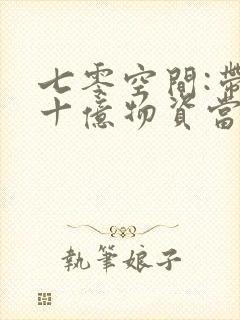 七零空間:帶
十億物資當
執筆娘子